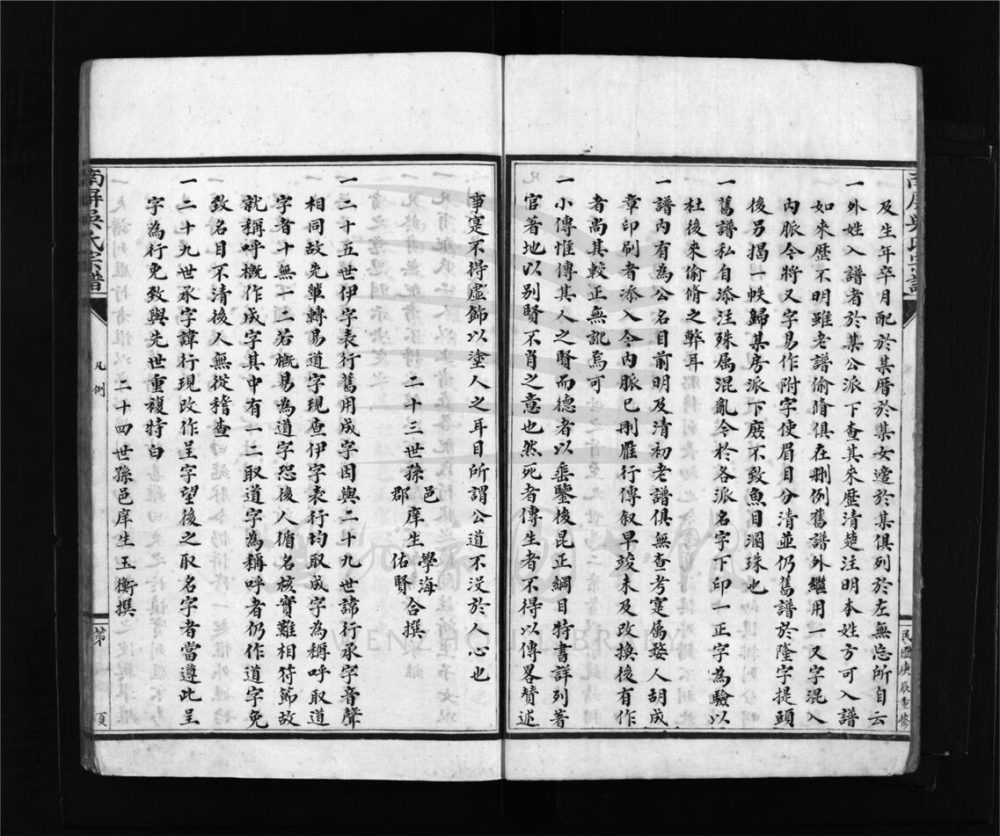 及生年卒月配於某厝於某女適於某俱列於左無忘所自云
一外姓入譜者於某公派下查其來歷清楚注明本姓方可入譜
如來歷不明雖老譜偷脩俱在刪例舊譜外繼用一又字混入
內脈今將又字易作附字使眉目分清並仍舊譜於隆字提頭
後另揭一帙歸某房派下庶不致魚目溷珠也
一舊譜私自添注殊属混亂今於各派名字下印一正字為驗以
杜後來偷脩之弊耳
一譜內有為公名目前明及清初老譜俱無查考寔属婺人胡成
章印刷者添入今內脈已刪雁行傳叙早竣未及改換後有作
者尚其較正無訛焉可
一小傳惟傳其人之賢而德者以垂鑒後昆正綱目特書詳列著
官著地以別賢不肖之意也然死者傳生者不得以傳畧贊述
事寔不得虛飾以塗人之耳目所謂公道不没於人心也
二十三世孫邑庠生學海
郡庠生佑賢合撰
一二十五世伊字表行舊用成字因與二十九世諱行承字音聲
相同故先輩轉易道字現查伊字表行均取成字為稱呼取道
字者十無一二若概易為道字恐後人循名核實難相符節故
就稱呼概作成字其中有一二取道字為稱呼者仍作道字免
致名目不清後人無從稽查
一二十九世承字諱行現改作呈字望後之取名字者當遵此呈
字為行免致與先世重複特白
二十四世孫邑庠生玉衡撰
南屏吳氏宗譜
凡例
第 頁
民國庚辰重修